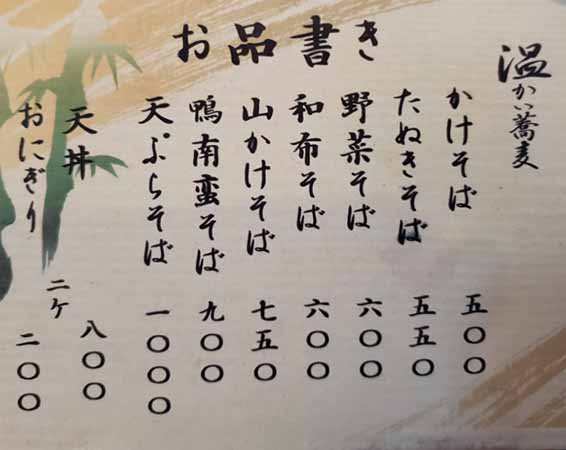 お品書き
温かい蕎麦
かけそば 五〇〇
たぬきそば 五五〇
野菜そば 六〇〇
和布そば 六〇〇
山かけそば 七五〇
鴨南蛮そば 九〇〇
天ぷらそば 一〇〇〇
天丼 八〇〇
おにぎり 二ケ 二〇〇